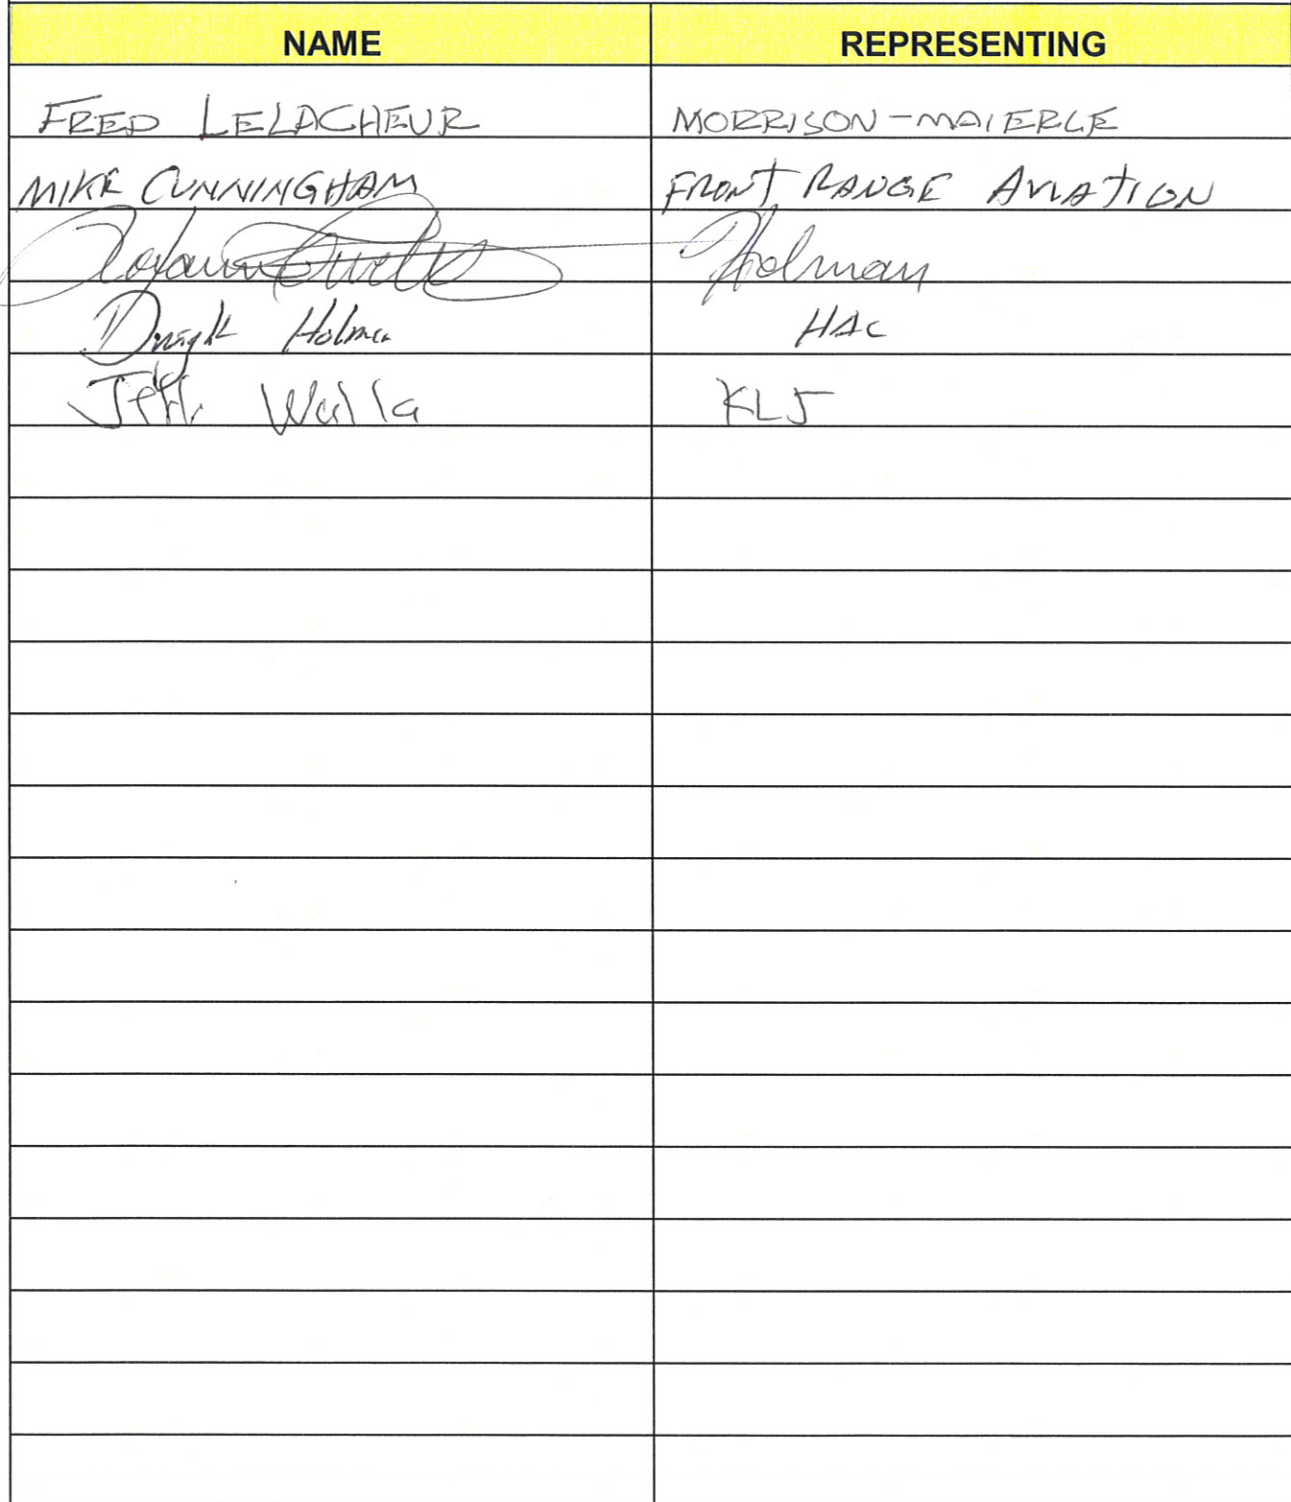 NAME REPRESENTING
FRED LELACHEUR MORRISON-MAIERLE
MIKE CUNNINGHAM FRONT RANGE AVIATION
Holman
Dwight Holman HAC
Jeff Walla KLJ